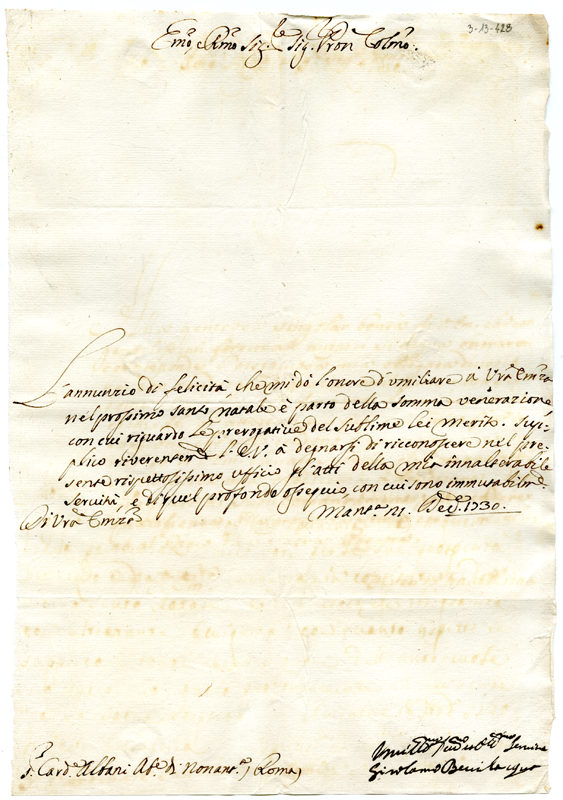 3-13-428
Em̃o, e Rm̃o Sig.re Sig.r Pron Colmo.
L'annunzio di felicità, che mi dò l'onore d'umiliare à Vrã Emza
nel prossimo santo natale è parto della somma venerazione,
con cui riguardo le prerogative del sublime lei merito. Sup-
plico riverentemte l'E.V. à degnarsi di ricconoscere nel pre-
sente rispettosissimo ufficio gl'atti della mia innalterabile
servitù, e di quel profondo ossequio, con cui sono immutabilmte
Di Vrã Emza Manta 21. Dec.e 1730.
Servitre
S.r Card. Albani Abe di Nonanta / Roma
Girolamo Bevilacqua